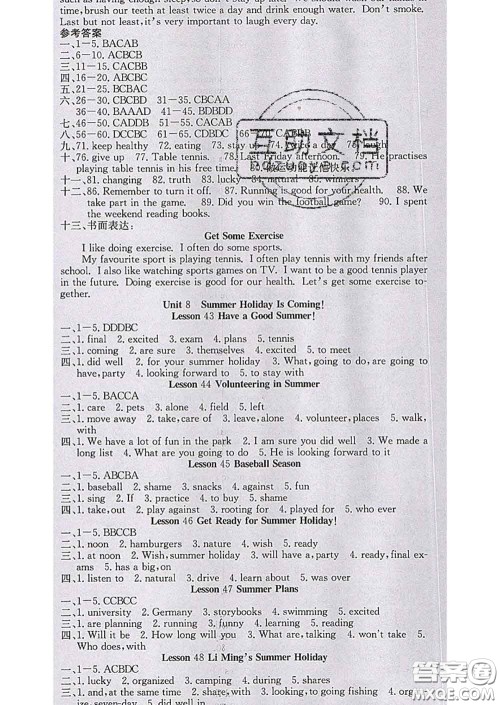 brush our teeth at least twice a day and drink enough water. Don't smoke.
Last but not least, it's very important to laugh every day.
参考答案
一、1—5. BACAB
二、6—10. ABCAC
三、11—15. CACBB
四、16—20. ABCBC
五、21—25. BCBAC
六、26—30. CBCBD 31—35. CBCAA
36—40. BAAAD 41—45. BDBDD
七、46—50. CADDD 51—55. CACAB
八、56—60. DCCBC 61—65. CDBDC 66
71. keep healthy 72. eating 73. stay up a day laugh
十、76. give up 77. Table tennis. 78. Last Friday afternoon. He practises
playing table tennis in his free time.
十一、81. changing 82. truth 83. lucky 84. natural 85. winners
十二、86. Remember to turn it off. 87. Running is good for your health. 88. We
take part in the game. 89. Did you win the football game? 90. I spent
the weekend reading books.
十三、书面表达:
Get Some Exercise
I like doing exercise. I often do some sports.
My favourite sport is playing tennis. I often play tennis with my friends after
school. I also like watching sports games on TV. I want to be a good tennis player
in the future. Doing exercise is good for our health. Let's get some exercise to-
gether.
Unit 8 Summer Holiday Is Coming!
Lesson 43 Have a Good Summer!
一、1—5. DDDBC
二、1. final 2. excited 3. exam 4. plans 5. tennis
三、1. coming 2. are sure 3. themselves 4. excited 5. to meet
四、1. did well 2. for your summer holiday 3. What, going to do, are going to
have, party 4. looking forward to 5. to stay with
Lesson 44 Volunteering in Summer
一、1—5. BACCA
二、1. care 2. pets 3. alone 4. field 5. left
三、1. move away 2. take, care of 3. leave, alone 4. volunteer, places 5. walk,
with
四、1. We have a lot of fun in the park 2. I am sure you did well 3. We made a
long list 4. What are you going to do 5. He is looking forward to it
Lesson 45 Baseball Season
一、1—5. ABCBA
二、1. baseball 2. shame 3. snacks 4. against 5. fun
三、1. sing 2. If 3. practice 4. to buy 5. shame
四、1. take, out 2. play against 3. rooting for 4. played for 5. who ever
Lesson 46 Get Ready for Summer Holiday!
一、1—5. BBCCB
二、1. noon 2. hamburgers 3. nature 4. wish 5. ready
三、1. at noon 2. Wish, summer holiday 3. had a, party 4. ready, final ex-
ams 5. has a big, on
四、1. listen to 2. natural 3. drive 4. learn about 5. was over
Lesson 47 Summer Plans
一、1—5. CCBCC
二、1. university 2. Germany 3. storybooks 4. swimming 5. excited
三、1. are planning 2. running 3. funny 4. learning 5. reading
四、1. Will it be 2. How long will you 3. What, talking about 4. to watch 5.
Who does, with
Lesson 48 Li Ming's Summer Holiday
一、1—5. ACBDC
二、1. lucky 2. organized 3. camping 4. during 5. shares
三、1. and, at the same time 2. share, with 3. looking forward to 4. org
ize, seven-day 5. did well in
互助文档
MXQE.COM